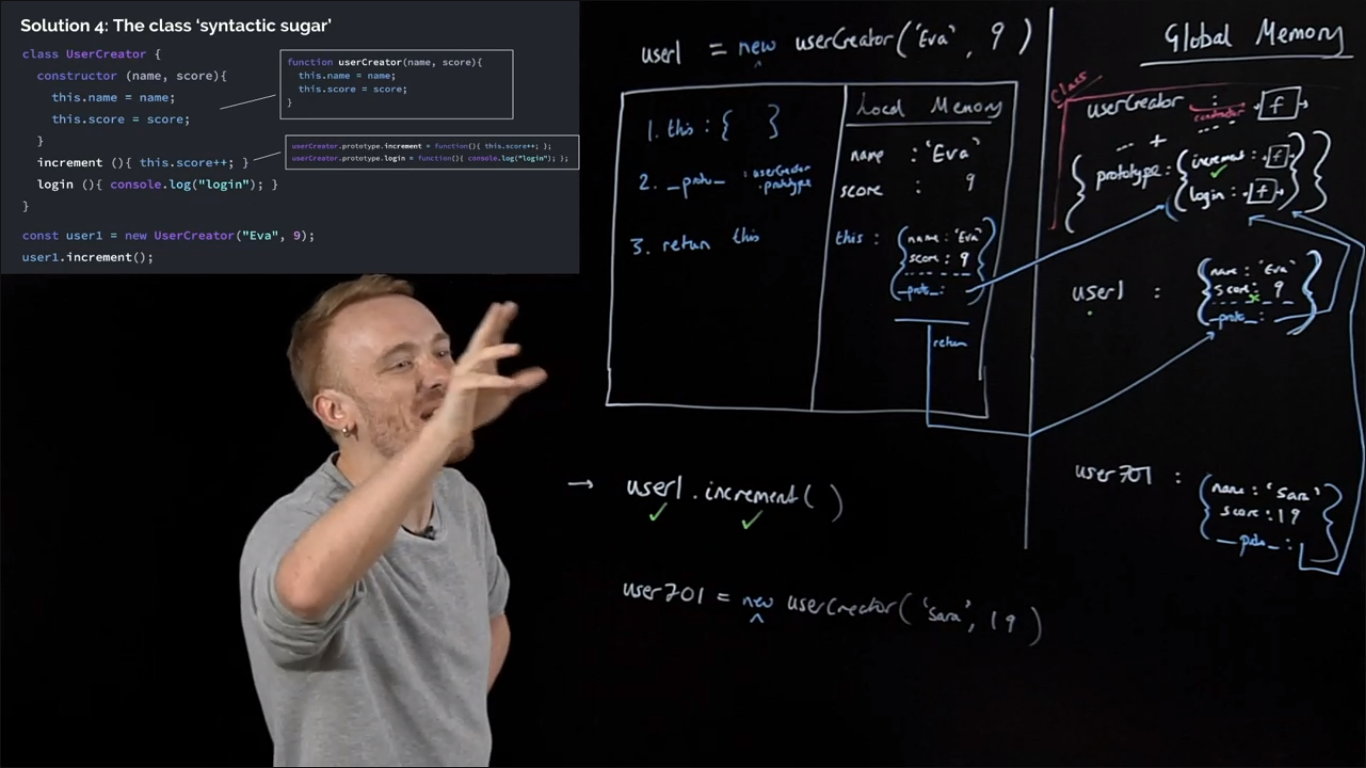 Solution 4: The class ‘syntactic sugar’
class UserCreator {
constructor (name, score){
this.name = name;
this.score = score;
}
increment (){ this.score++; }
login (){ console.log("login"); }
}
const user1 = new UserCreator("Eva", 9);
user1.increment();
function userCreator(name, score){
this.name = name;
this.score = score;
}
userCreator.prototype.increment = function(){ this.score++; };
userCreator.prototype.login = function(){ console.log("login"); };
user1 = new userCreator('Eva', 9)
1. this : { }
2. __proto__ : userCreator
.prototype
3. return this
Local Memory
name : 'Eva'
score : 9
this : { name : 'Eva'
score : 9
__proto__ : }
return
→ user1.increment( )
user701 = new userCreator('Sara', 19)
Global Memory
Class
userCreator : f
constructor
+
{ prototype : { increment : f
login : f } }
user1 : { name : 'Eva'
score : 9
__proto__ : }
user701 : { name : 'Sara'
score : 19
__proto__ : }